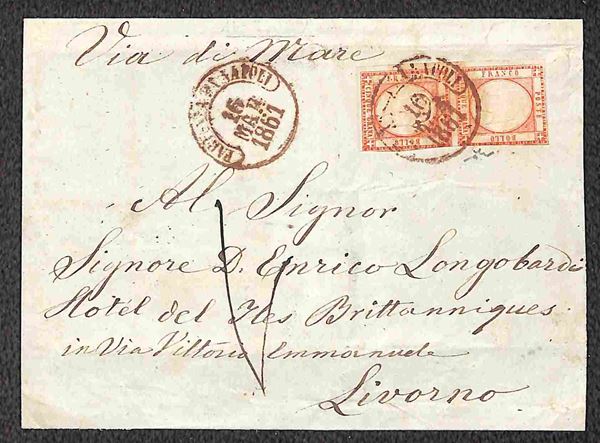 Via di Mare
PARTENZA DA NAPOLI
16
MAR
1861
NAPOLI
16
1861
FRANCO
POSTE
BOLLO
BOLLO
Al Signor
Signore D. Enrico Longobardi
Hotél del Iles Brittanniques
in Via Vittorio Emmanuele
Livorno